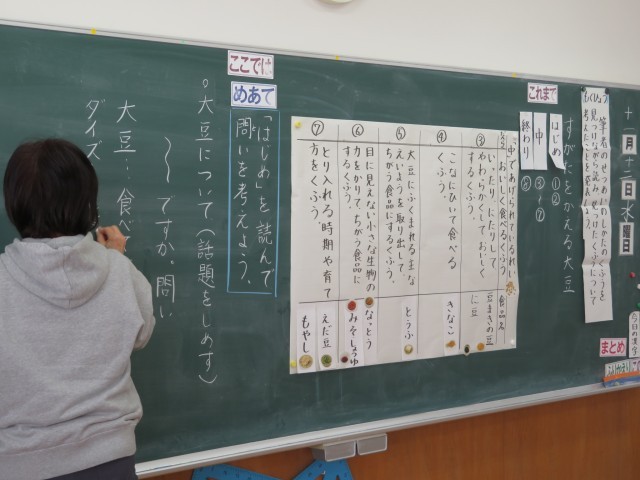 十一月十二日水曜日
今日の漢字
まとめ
すがたをかえる大豆
これまで
はじめ ①②
中 ③~⑦
終わり ⑧
中であげられているれい
おいしく食べるくふう
食品名
③
いったり、にたりして、
やわらかくて、おいしく
するくふう。
豆まきの豆
に豆
④
こなにひいて食べる
くふう。
きなこ
⑤
大豆にふくまれる主な
えいようを取り出して、
ちがう食品にするくふう。
とうふ
⑥
目に見えない小さな生物の
力をかりて、ちがう食品に
するくふう。
なっとう
みそ しょうゆ
⑦
とり入れる時期や育て
方をくふう。
えだ豆
もやし
ここでは
めあて
「はじめ」を読んで
問いを考えよう。
○大豆について(話題をしめす)
~~ですか。問い
大豆…食べ
ダイズ